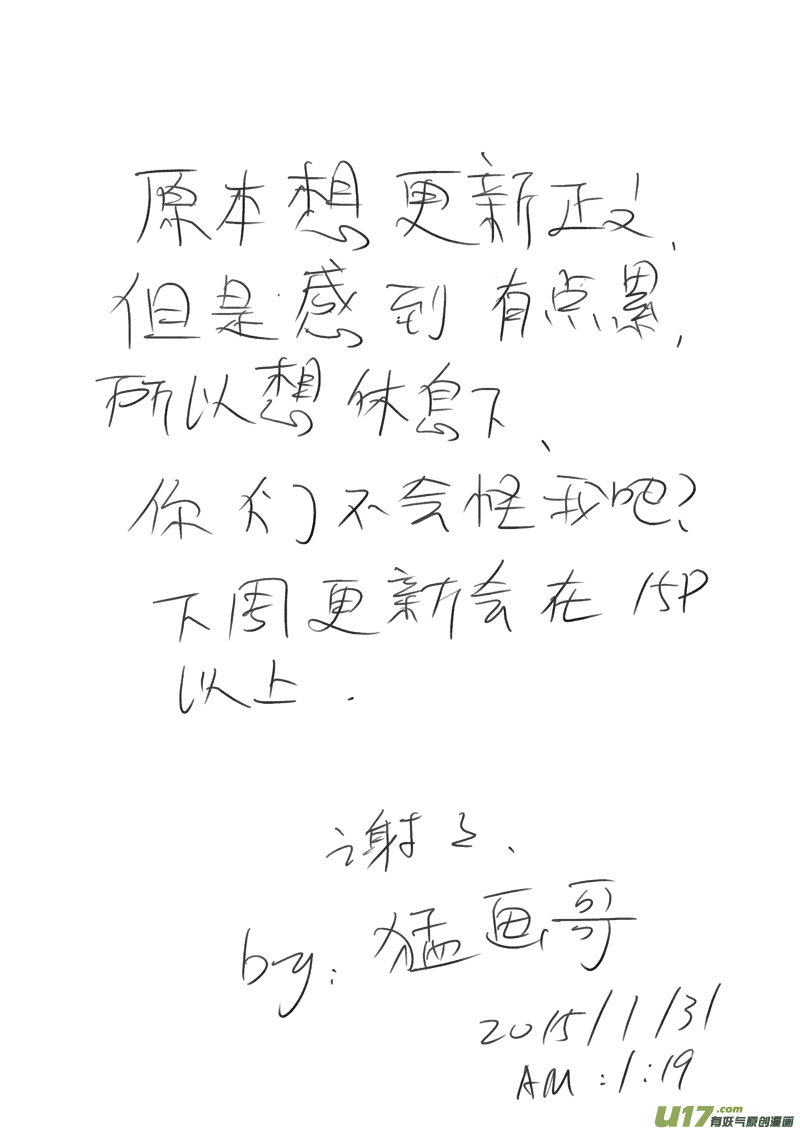 原本想更新正文,
但是感到有点累,
所以想休息下、
你们不会怪我吧?
下周更新会在15P
以上.
谢々、
by:猛画哥
2015/1/31
AM:1:19
U17.com
有妖气原创漫画